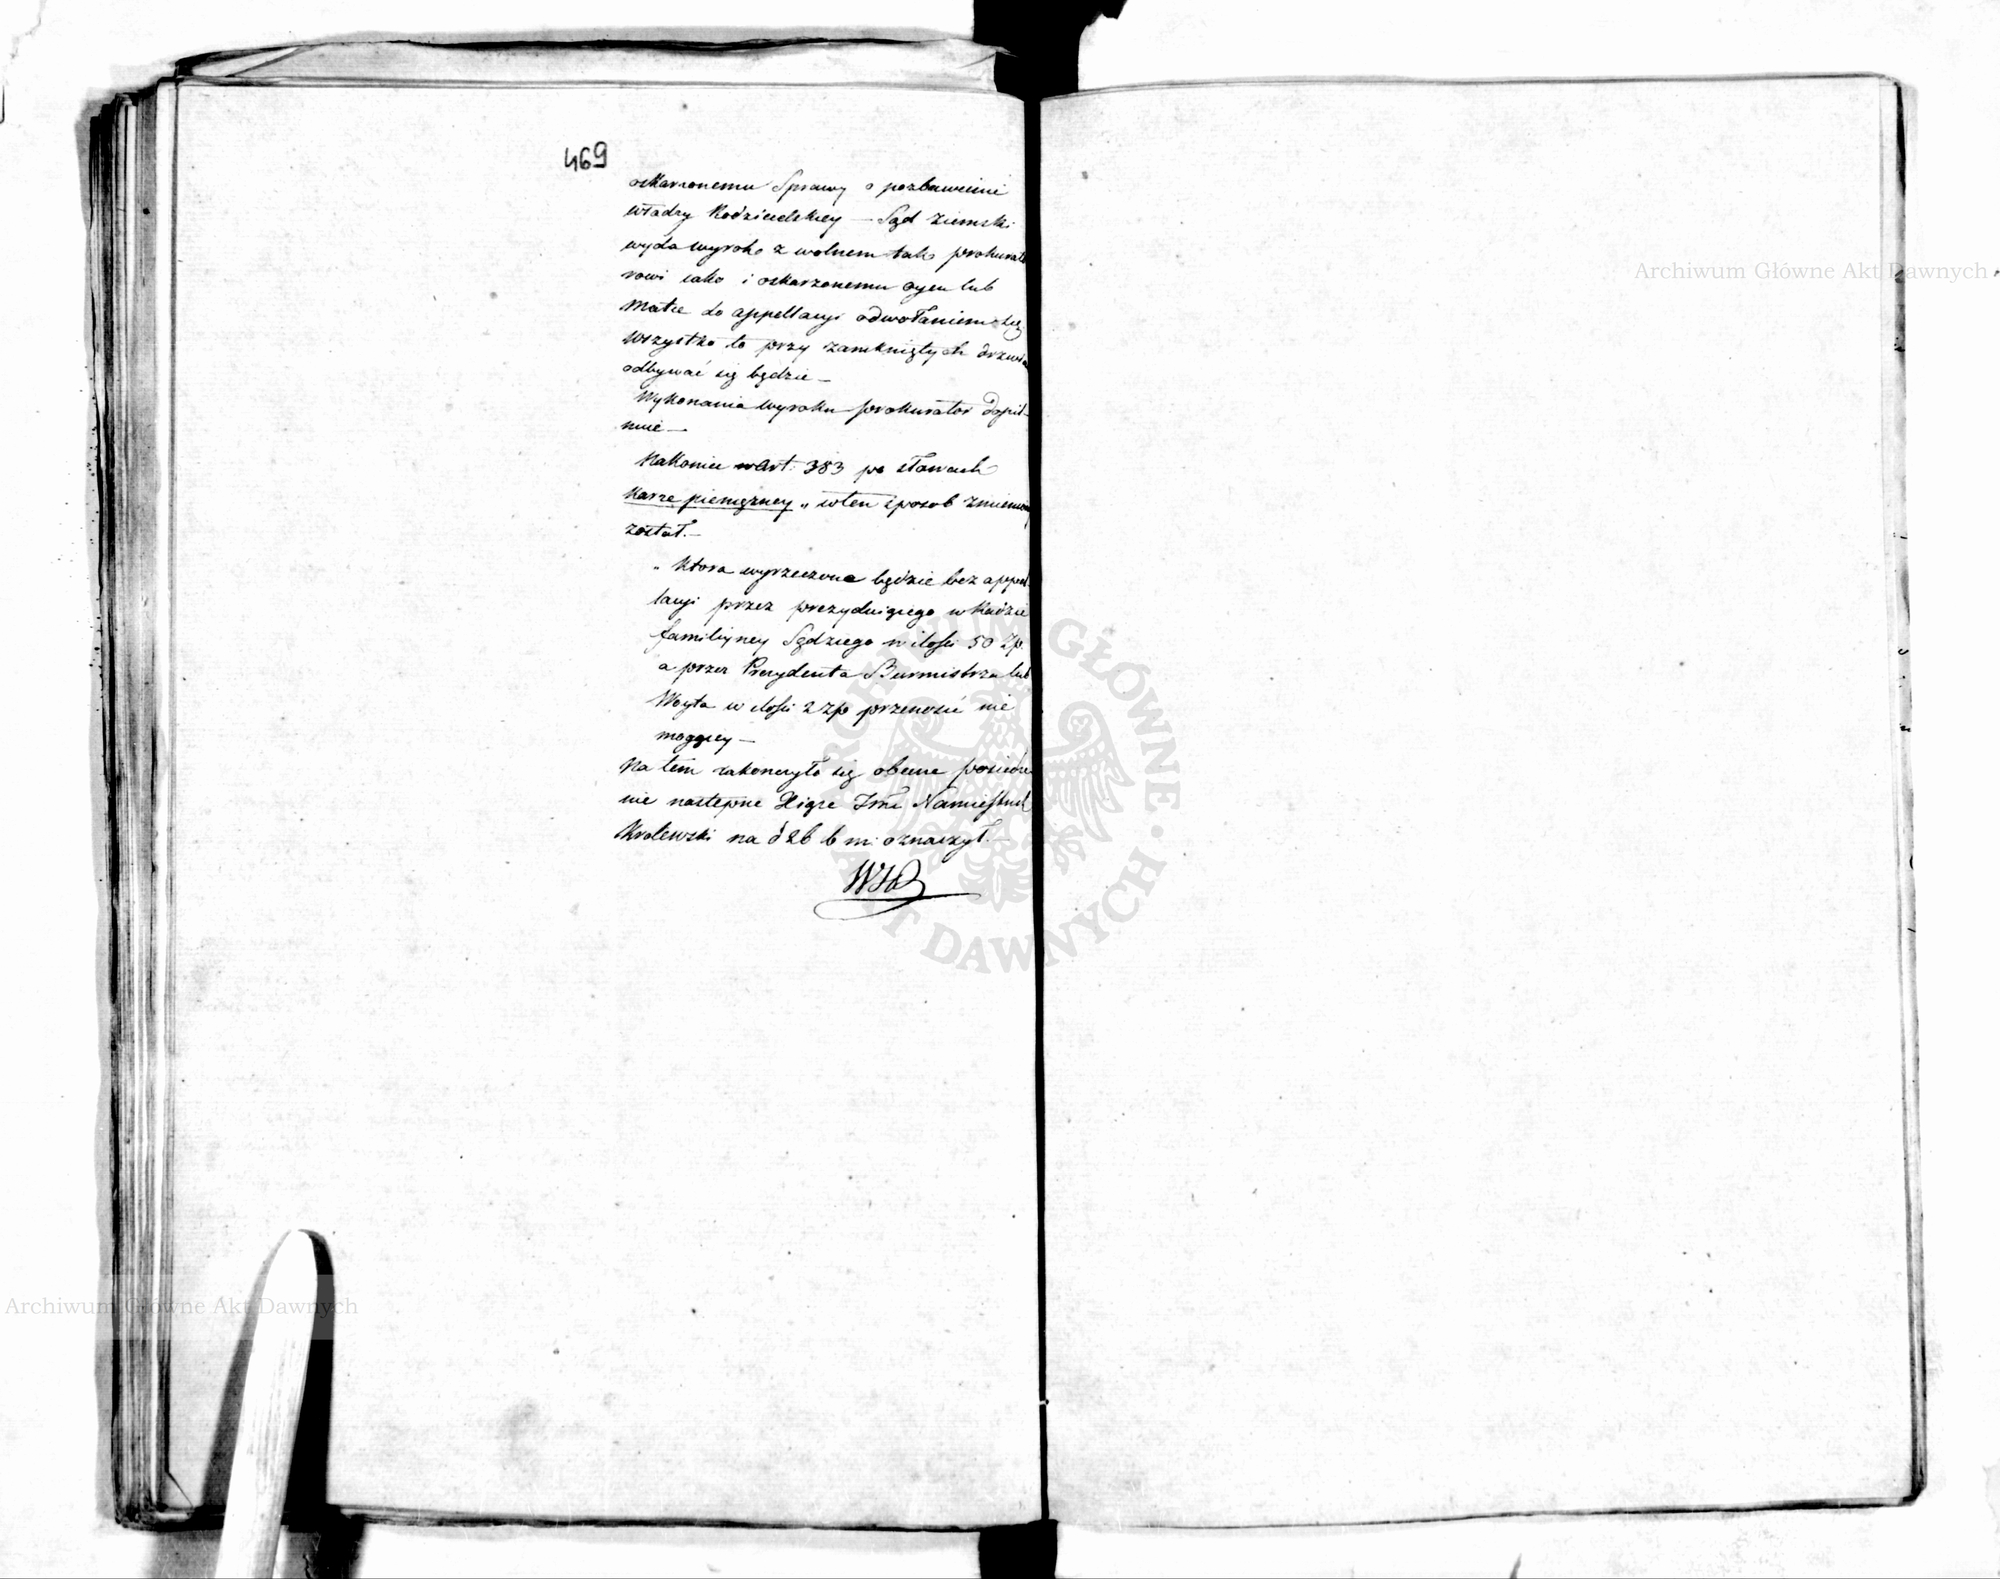 469
oskarżonemu Sprawy o pozbawienie
władzy Rodzicielskiey — Sąd Ziemski
wyda wyrok z wolnem tak prokurato
rowi iako i oskarzonemu oycu lub
Matce do appellacyi odwołaniem się.
Wszystko to przy zamkniętych drzwia
odbywać się będzie —
Wykonania wyroku prokurator dopil-
nuie —
Nakoniec w Art. 383 po słowach
karze pieniężney „ w ten sposob zmieniony
został. —
„ Ktora wyrzeczona będzie bez appel-
lacyi przez prezyduiącego w Radzie
familiyney Sędziego w ilości 50 Zp.
a przez Prezydenta Burmistrza lub
Woyta w ilości 2 zp przenosić nie
mogącey —
Na tém zakonczyło się obecne posiedze
nie następne Xiąże Jmć Namiestnik
Krolewski na d 26 b m: oznaczył. —
ARCHIWUM GŁÓWNE AKT DAWNYCH
Archiwum Główne Akt Dawnych
Archiwum Główne Akt Dawnych